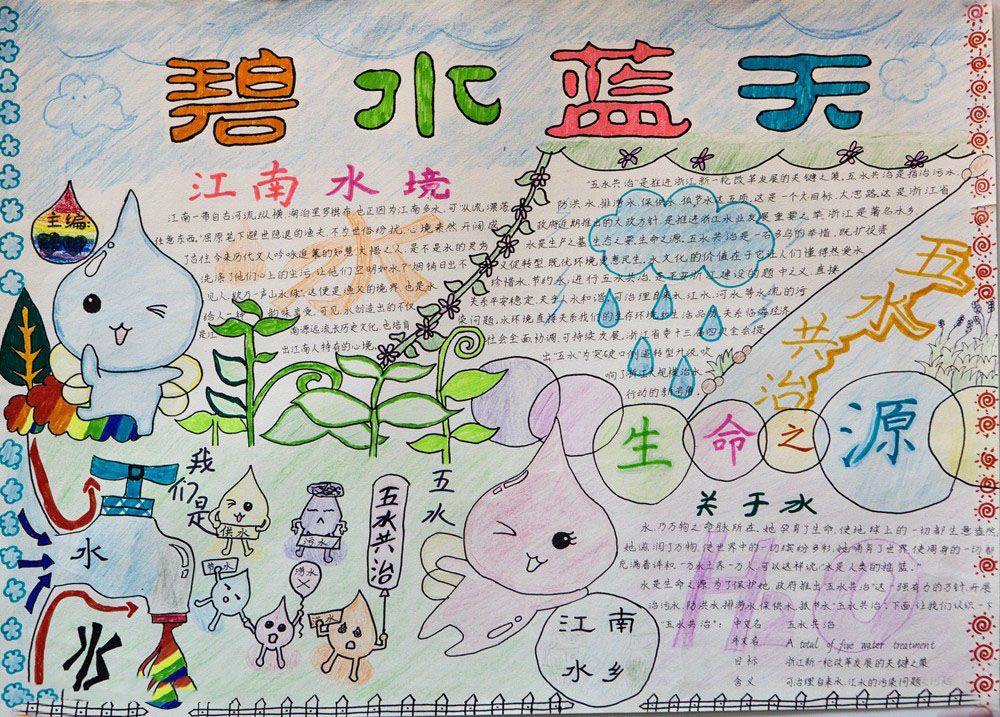 碧水蓝天
主编:
江南水境
江南一带自古河流纵横,湖泊星罗棋布,也正因为江南多水,可
任意东西。"屈原笔下避世隐退的渔史,不为世俗纷扰,心境来然开阔度
了古往今来历代文人吟咏追慕的仰慧大悟之人,是不是水的灵为
洗涤了他们心上的尘污,让他们空明如水?"烟销日出不
见人,欸乃一声山水绿。"这便是渔父的境界,也是水
给人一种
是江南源远流长历史文化,也培育
出江南人特有的心境。
"五水共治"是推进浙江新一轮改革发展的关键之策。五水共治是指治污水、
防洪水、排涝水、保供水、抓节水这五项。这是一个大目标、大思路,这是浙江省
政府近期推出的大政方针,是推进浙江水业发展重要之举。浙江是著名水乡
水是生产之基,生态之要,生命之源。五水共治是一石多鸟的举措,既扩投资
又促转型,既优环境更惠民生。水的价值在于它让人们懂得热爱水、
珍惜水、节约水,进行五水共治,是平安浙江建设的题中之义,直接
关系平安稳定,关乎人水和谐,可治理自来水、江水、河水等水流的污
染问题。水环境直接关系我们的生存环境和生活品质,关系临海经济
社会全面协调、可持续发展。浙江省委十三届四次全会提
出"五水"为突破口倒逼转型升级,吹
响了浙江大规模治水
行动的新号角。
五水
共治
生命之源
关于水
水,乃万物之命脉所在,她孕育了生命,使地球上的一切都生意盎然,
她滋润了万物,使世界中的一切缤纷多彩,她哺育了世界,使周身的一切都
充满着诗积。"一方水土养一方人",可以这样说,"水是人类的摇篮。"
水是生命之源,为了保护她,政府推出"五水共治"这一强有力的方针,开展
治污水、防洪水、排涝水、保供水、抓节水"五水共治"。下面让我们认识一下
"五水共治":中文名 五水共治
外文名 A total of five water treatment
目标 浙江新一轮改革发展的关键之策
含义 可治理自来水、江水的污染问题
H2O
水
我们是
五水
供水
污水
节水
涝水
洪水
五水共治
江南
水乡